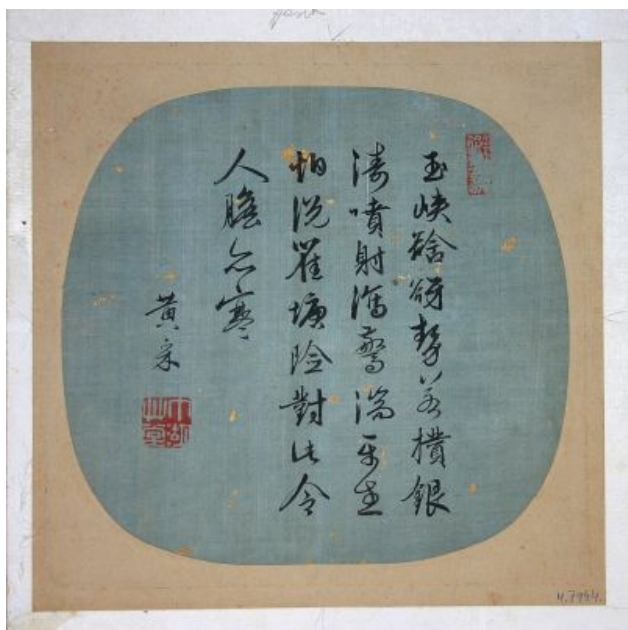 玉峽谽谺勢若橫銀
濤噴射瀉驚湍平生
怕說瞿塘險對此令
人膽亦寒
黃采